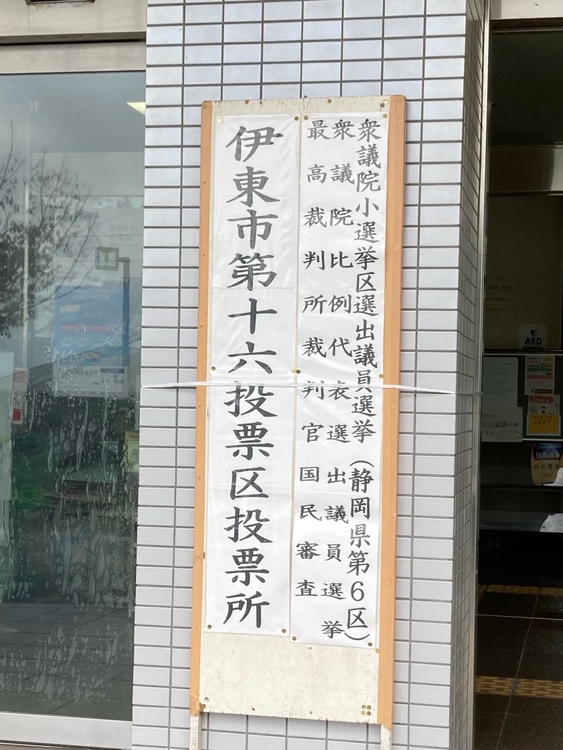 衆議院小選挙区選出議員選挙(静岡県第6区)
衆議院比例代表選出議員選挙
最高裁判所裁判官国民審査
伊東市第十六投票区投票所
AED